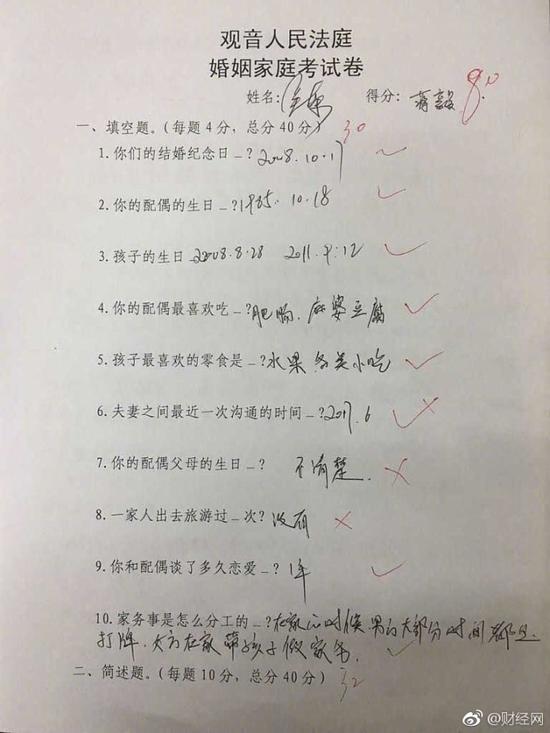 观音人民法庭
婚姻家庭考试卷
姓名: 得分: 80
一、填空题。(每题4分，总分40分) 30
1.你们的结婚纪念日_?2008.10.17
2.你的配偶的生日_?1985.10.18
3.孩子的生日_2008.8.28 2011.9.12
4.你的配偶最喜欢吃_?肥肠、麻婆豆腐
5.孩子最喜欢的零食是_?水果 各类小吃
6.夫妻之间最近一次沟通的时间_?2017.6
7.你的配偶父母的生日_? 不清楚.
8.一家人出去旅游过_次?没有
9.你和配偶谈了多久恋爱_?1年
10.家务事是怎么分工的_?在家的时候男的大部分时间都是
打牌.女方在家带孩子做家务.
二、简述题。(每题10分，总分40分) 32
@财经网